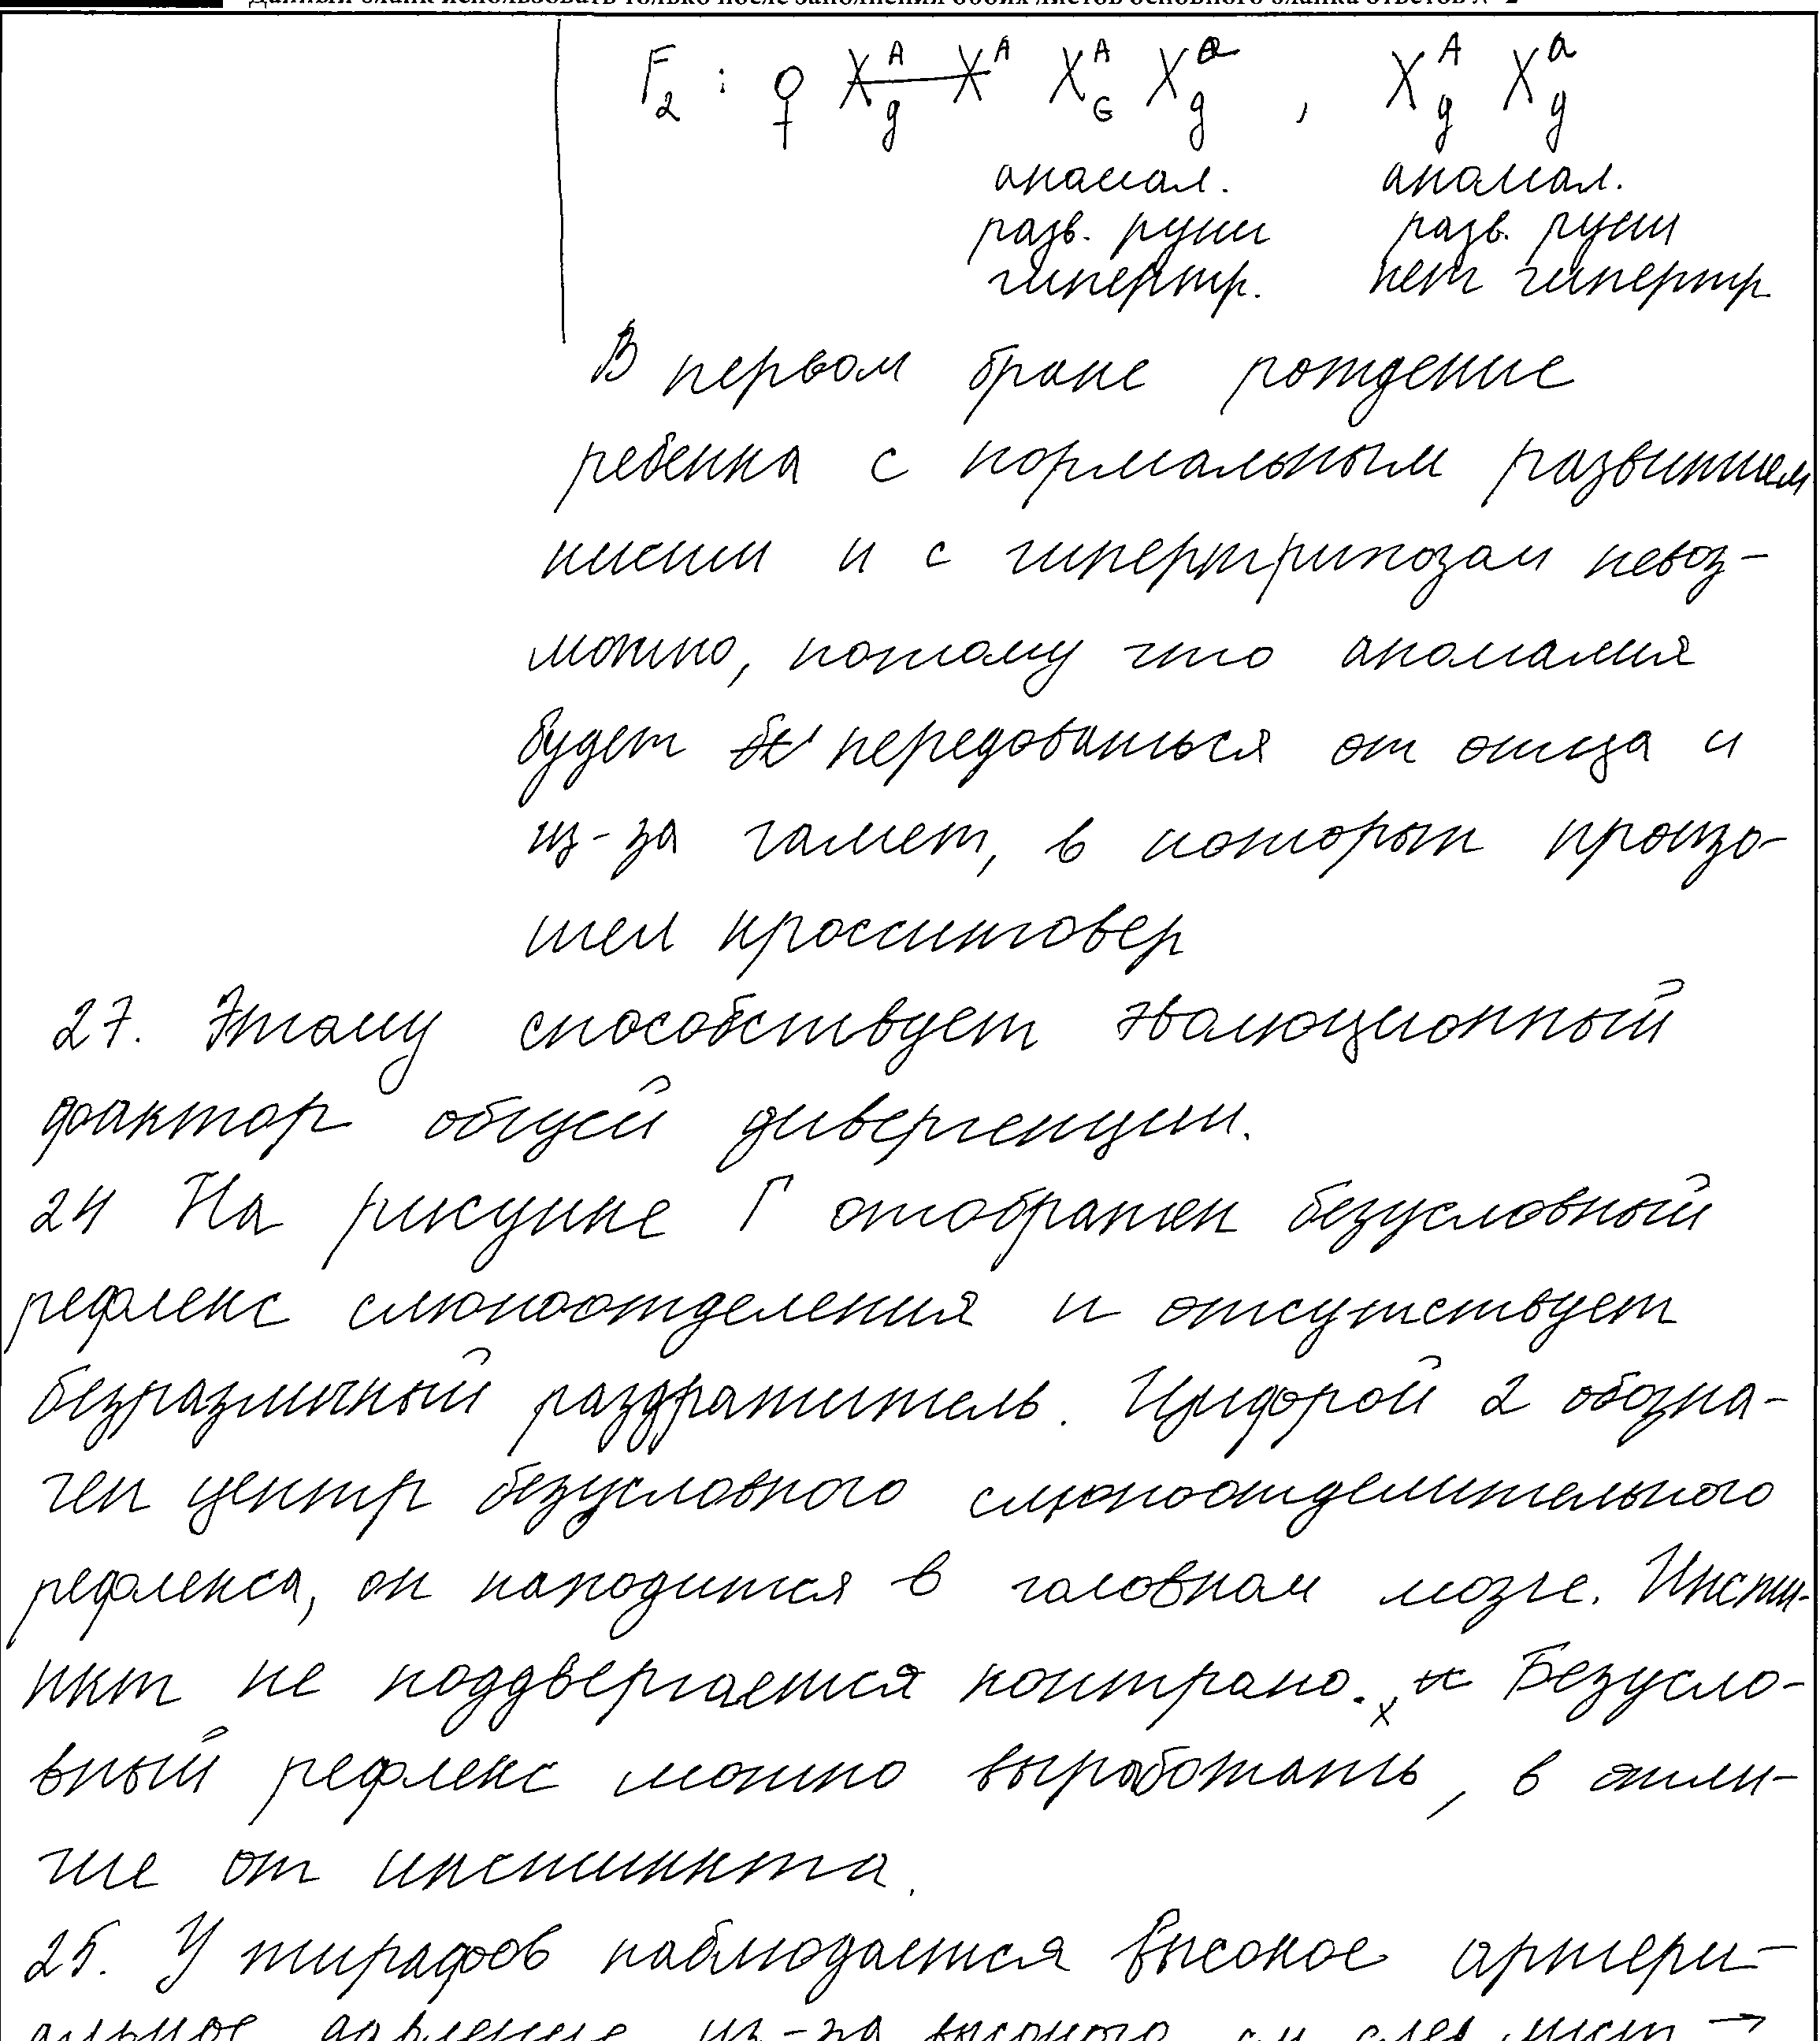 Данный бланк использовать только после заполнения обоих листов основного бланка ответов № 2
F2 : ♀ X^A_g X^A X^A_G X^a_g , X^A_g X^a_g
аномал. аномал.
разв. руки разв. руки
гипертр. нет гипертр
В первом браке рождение
ребенка с нормальным развитием
кисти и с гипертрихозом невоз-
можно, потому что аномалия
будет передоваться от отца и
из-за гамет, в которых произо-
шел кроссинговер
27. Этому способствует эволюционный
фактор общей дивергенции.
24 На рисунке Г отображен безусловный
рефлекс слюноотделения и отсутствует
безразличный раздражитель. Цифрой 2 обозна-
чен центр безусловного слюноотделительного
рефлекса, он находится в головном мозге. Инсти-
нкт не поддвергается контролю. Безусло-
вный рефлекс можно выработать, в отли-
чие от инстинкта.
25. У жирафов наблюдается высокое артери-
альное давление из-за высокого